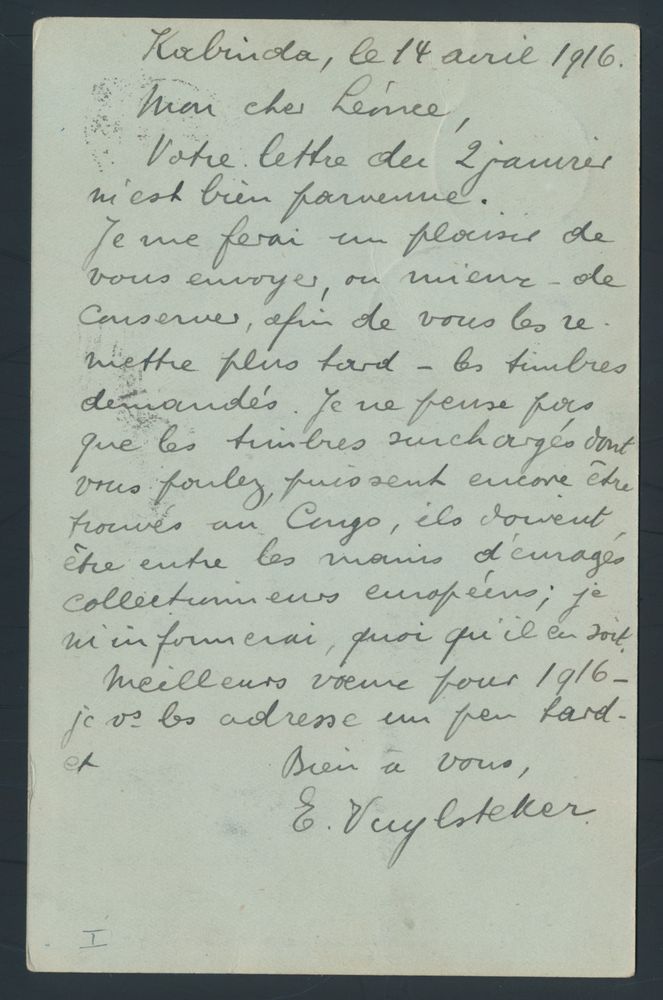 Kabinda, le 14 avril 1916.
Mon cher Léonce,
Votre lettre du 2 janvier
m'est bien parvenue.
Je me ferai un plaisir de
vous envoyer, ou mieux - de
conserver, afin de vous les re-
mettre plus tard - les timbres
demandés. Je ne pense pas
que les timbres surchargés dont
vous parlez, puissent encore être
trouvés au Congo, ils doivent
être entre les mains d'enragés
collectionneurs européens; je
m'informerai, quoi qu'il en soit.
Meilleurs vœux pour 1916 -
je vs les adresse un peu tard -
et Bien à vous,
E. Vuylsteker
I